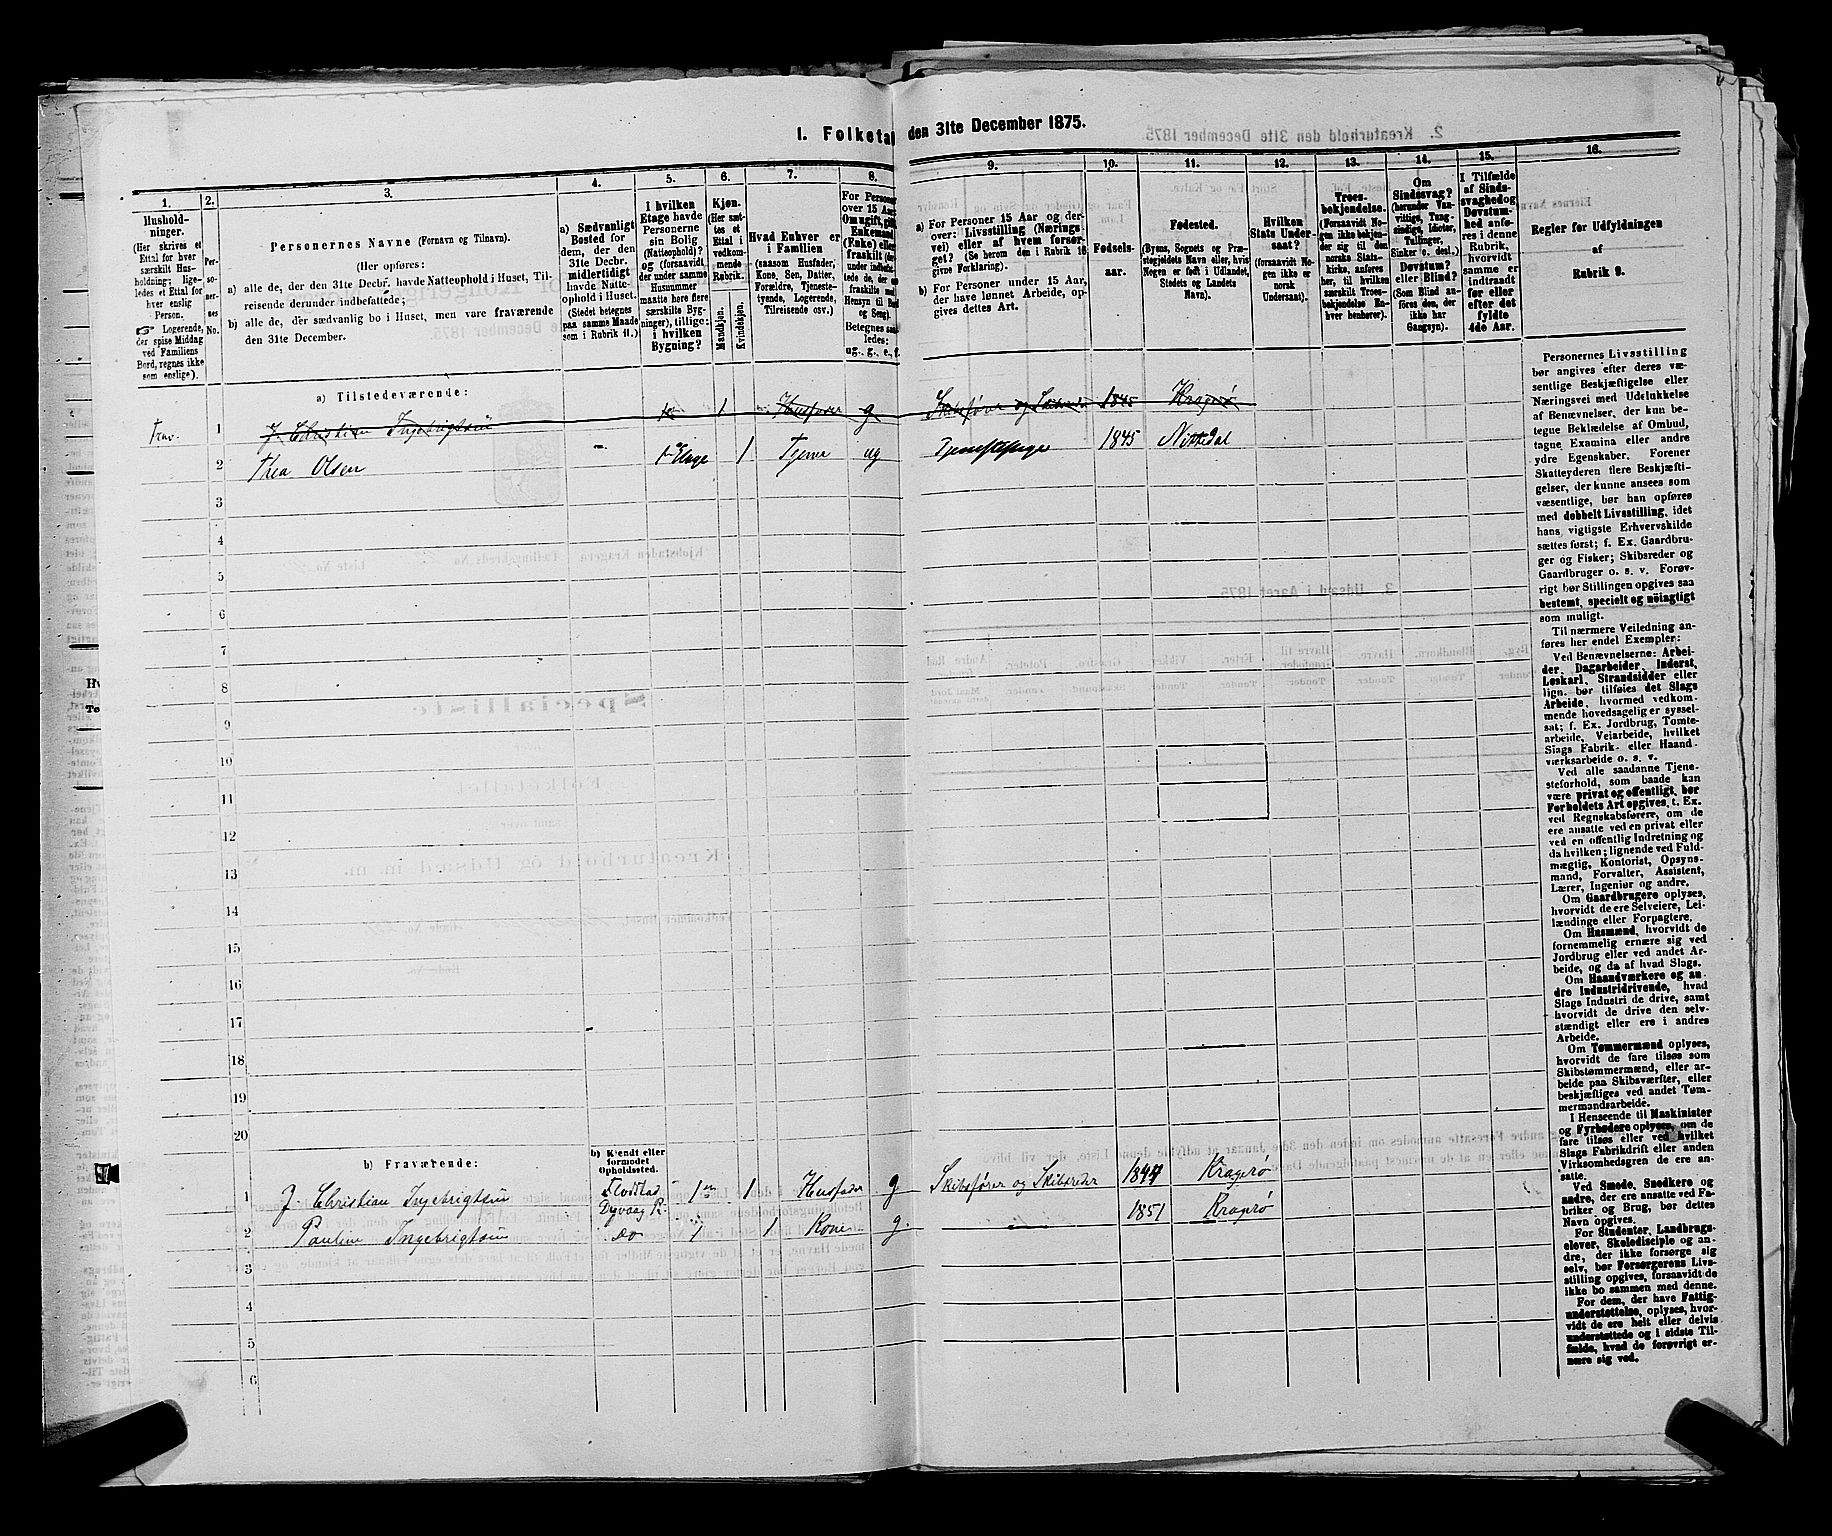 I. Folketal den 31te December 1875.
1.
Hushold-
ninger.
(Her skrives et
Ettal for hver
særskilt Hus-
holdning; lige-
ledes et Ettal for
hver enslig
Person.
☞ Logerende,
der spise Middag
ved Familiens
Bord, regnes ikke
som enslige).
2.
Per-
so-
ner-
nes
No.
3.
Personernes Navne (Fornavn og Tilnavn).
(Her opføres:
a) alle de, der den 31te Decbr. havde Natteophold i Huset, Til-
reisende derunder indbefattede;
b) alle de, der sædvanlig bo i Huset, men vare fraværende
den 31te December.
4.
a) Sædvanligt
Bosted for
dem, der den
31te Decbr.
midlertidigt
havde Natte-
ophold i Huset.
(Stedet betegnes
paa samme Maade
som i Rubrik 11.)
5.
I hvilken
Etage havde
Personerne
sin Bolig
(Natteophold)?
og (forsaavidt
der under samme
Husnummer
maatte høre flere
særskilte Byg-
ninger), tillige:
i hvilken
Bygning?
6.
Kjøn.
(Her sæt-
tes et
Ettal i
vedkom-
mende
Rubrik.
Mandkjøn.
Kvindekjøn.
7.
Hvad Enhver er
i Familien
(saasom Husfader,
Kone, Søn, Datter,
Forældre, Tjeneste-
tyende, Logerende,
Tilreisende osv.)
8.
For Personer
over 15 Aar:
Om ugift, gift,
Enkemand
(Enke) eller
fraskilt (der-
under indbefat-
tede de, der ere
fraskilte med
Hensyn til Bord
og Seng).
Betegnes saa-
ledes:
ug., g., e., f.
9.
a) For Personer 15 Aar og der-
over: Livsstilling (Nærings-
vei) eller af hvem forsør-
get? (Se herom den i Rubrik 16
givne Forklaring).
b) For Personer under 15 Aar,
der have lønnet Arbeide, op-
gives dettes Art.
10.
Fødsels-
aar.
11.
Fødested.
(Byens, Sognets og Præ-
stegjeldets Navn eller, hvis
Nogen er født i Udlandet,
Stedets og Landets
Navn).
12.
Hvilken
Stats Under-
saat?
(forsaavidt No-
gen ikke er
norsk
Undersaat).
13.
Troes-
bekjendelse.
(Forsaavidt No-
gen ikke bekjen-
der sig til den
norske Stats-
kirke, anføres
her, til hvilken
særskilt Troes-
bekjendelse En-
hver henhører).
14.
Om
Sindssvag?
(herunder Van-
vittige, Tung-
sindige, Idioter,
Tullinger,
Sinker o. desl.)
Døvstum?
eller Blind?
(Som Blind an-
føres den, der
ikke har
Gangsyn).
15.
I Tilfælde
af Sinds-
svaghed og
Døvstum-
hed anfø-
res i denne
Rubrik,
hvorvidt
samme er
indtraadt
før eller
efter det
fyldte
4de Aar.
16.
Regler for Udfyldningen
af
Rubrik 9.
a) Tilstedeværende:
frav. 1 J. Christian Ingebrigtsen 1 Husfader g Skibsfører og 1845 Kragerø
2 Thea Olsen 1 Etage 1 Tjene ug Tjenestepige 1845 Nittedal
3
4
5
6
7
8
9
10
11
12
13
14
15
16
17
18
19
20
b) Fraværende:
b) Kjendt eller
formodet
Opholdssted.
1 J. Christian Ingebrigtsen Dyvaag 1 1 Husfader g Skibsfører og Skibsreder 1844 Kragerø
2 Pauline Ingebrigtsen do 1 1 Kone g. 1851 Kragerø
3
4
5
6
Personernes Livsstilling
bør angives efter deres væ-
sentlige Beskjæftigelse eller
Næringsvei med Udelukkelse
af Benævnelser, der kun be-
tegne Beklædelse af Ombud,
tagne Examina eller andre
ydre Egenskaber. Forener
Skatteyderen flere Beskjæfti-
gelser, der kunne ansees som
væsentlige, bør han opføres
med dobbelt Livsstilling, idet
hans vigtigste Erhvervskilde
sættes først; f. Ex. Gaardbru-
ger og Fisker; Skibsreder og
Gaardbruger o. s. v. Forøv-
rigt bør Stillingen opgives saa
bestemt, specielt og nöiagtigt
som muligt.
Til nærmere Veiledning an-
føres her endel Exempler:
Ved Benævnelserne: Arbei-
der, Dagarbeider, Inderst,
Løskarl, Strandsidder eller
lign. bør tilføies det Slags
Arbeide, hvormed vedkom-
mende hovedsagelig er syssel-
sat; f. Ex. Jordbrug, Tomte-
arbeide, Veiarbeide, hvilket
Slags Fabrik- eller Haand-
værksarbeide o. s. v.
Ved alle saadanne Tjene-
steforhold, som baade kan
være privat og offentligt, bør
Forholdets Art opgives, t. Ex.
ved Regnskabsførere, om de
ere ansatte ved en privat eller
ved en offentlig Indretning og
da hvilken; lignende ved Fuld-
mægtig, Kontorist, Opsyns-
mand, Forvalter, Assistent,
Lærer, Ingeniør og andre.
Om Gaardbrugere oplyses,
hvorvidt de ere Selveiere, Lei-
lændinge eller Forpagtere.
Om Husmænd, hvorvidt de
fornemmelig ernære sig ved
Jordbrug eller ved andet Ar-
beide, og da af hvad Slags.
Om Haandværkere og an-
dre Industridrivende, hvad
Slags Industri de drive, samt
hvorvidt de drive den selv-
stændigt eller ere i andres
Arbeide.
Om Tømmermænd oplyses,
hvorvidt de fare tilsøs som
Skibstømmermænd, eller ar-
beide paa Skibsværfter, eller
beskjæftiges ved andet Tøm-
mermandsarbeide.
I Henseende til Maskinister
og Fyrbødere oplyses, om de
fare tilsøs eller ved hvilket
Slags Fabrikdrift eller anden
Virksomhedsgren de ere an-
satte.
Ved Smede, Snedkere og
andre, der ere ansatte ved Fa-
briker og Brug, bør dettes
Navn opgives.
For Studenter, Landbrugs-
elever, Skoledisciple og an-
dre, der ikke forsørge sig
selv, bør Forsørgerens Livs-
stilling opgives, forsaavidt de
ikke bo sammen med denne.
For dem, der have Fattig-
understøttelse, oplyses, hvor-
vidt de ere helt eller delvis
understøttede og i sidste Til-
fælde, hvad de forøvrigt er-
nære sig ved.